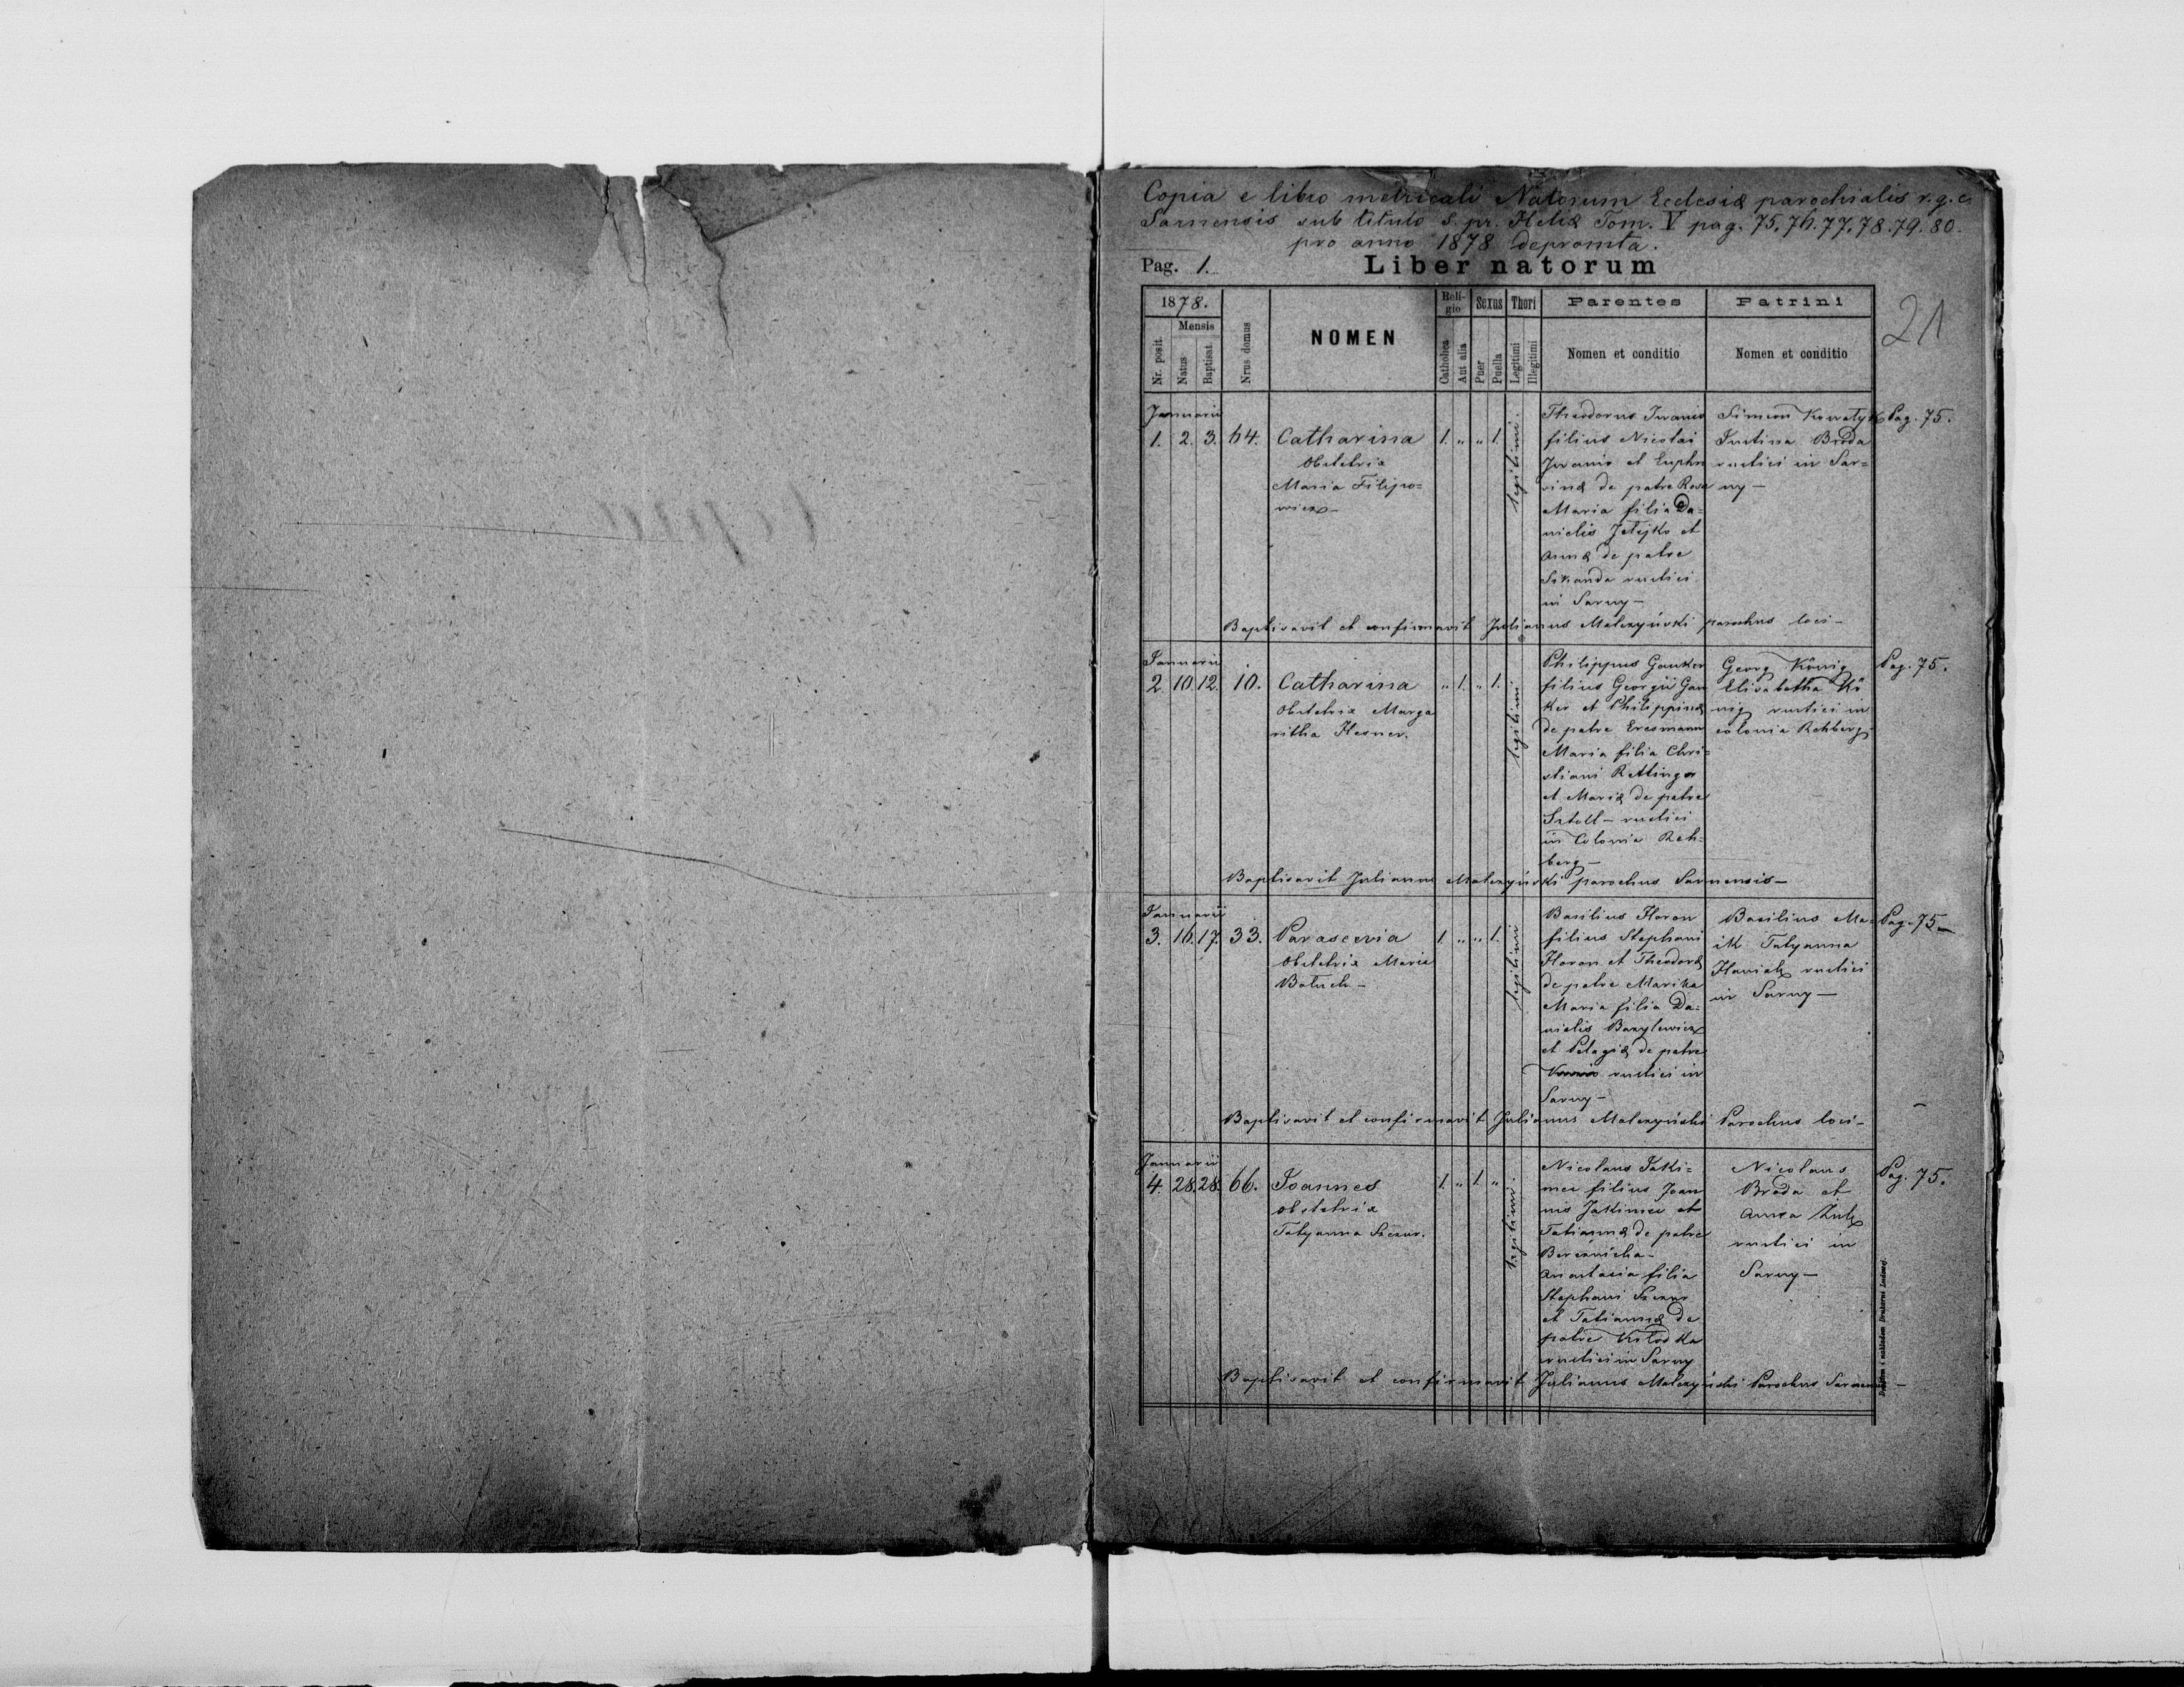 Copia e libro metricali Natorum Ecclesiæ parochialis r. g. c.
Sarnensis sub titulo S. pr. Heliæ Tom. V pag. 75. 76. 77. 78. 79. 80.
pro anno 1878 depromta.
Pag. 1.
Liber natorum
21
1878.
Nr. posit.
Mensis
Natus
Baptisat.
Nrus domus
NOMEN
Religio
Catholica
Aut alia
Sexus
Puer
Puella
Thori
Legitimi
Illegitimi
Parentes
Nomen et conditio
Patrini
Nomen et conditio
Januarii
1. 2. 3. 64. Catharina 1. „ „ 1. legitimi.
Obstetrix
Maria Filipo=
wicz –
Theodorus Iwanio
filius Nicolai
Iwanio et Euphro
sinæ de patre Rosa
Maria filia Da=
nielis Jelejko et
Annæ de patre
Sikanda rustici
in Sarny –
Simeon
Justina Broda
rustici in Sar=
ny –
Pag. 75.
Baptisavit et confirmavit Julianus Malczyński parochus loci –
Januarii
2. 10. 12. 10. Catharina „ 1. „ 1. legitimi
Obstetrix Marga
ritha Hesner.
Philippus Gauker
filius Georgii Gau
ker et Philippinæ
de patre Eresmann
Maria filia Chri=
stiani Rettinger
et Mariæ de patre
Sztoll – rustici
in Colonia Reh=
berg –
Georg König
Elisabetha Kö
nig rustici in
colonia Rehberg
Pag. 75.
Baptisavit Julianus Malczyński parochus Sarnensis –
Januarii
3. 16. 17. 33. Parascevia 1. „ „ 1. legitimi
Obstetrix Maria
Batuch –
Basilius Horon
filius Stephani
Horon et Theodoræ
de patre Marika
Maria filia Da=
nielis Bazylewicz
et Pelagiæ de patre
rustici in
Sarny –
Basilius Ma=
ik Tatyanna
rustici
in Sarny –
Pag. 75 –
Baptisavit et confirmavit Julianus Malczyński Parochus loci –
Januarii
4. 28. 28. 66. Joannes 1. „ 1. „ legitimi.
obstetrix
Tatyanna Szczur.
Nicolaus Jaki=
mec filius Joan
nis Jakimec et
Tatiannæ de patre
Bereznicka –
Anastasia filia
Stephani Szczur
et Tatiannæ de
patre
rustici in Sarny
Nicolaus
Broda et
Anna
rustici in
Sarny –
Pag. 75.
Baptisavit et confirmavit Julianus Malczyński Parochus Sarnensis –
Drukiem i nakładem Drukarni Ludowej.